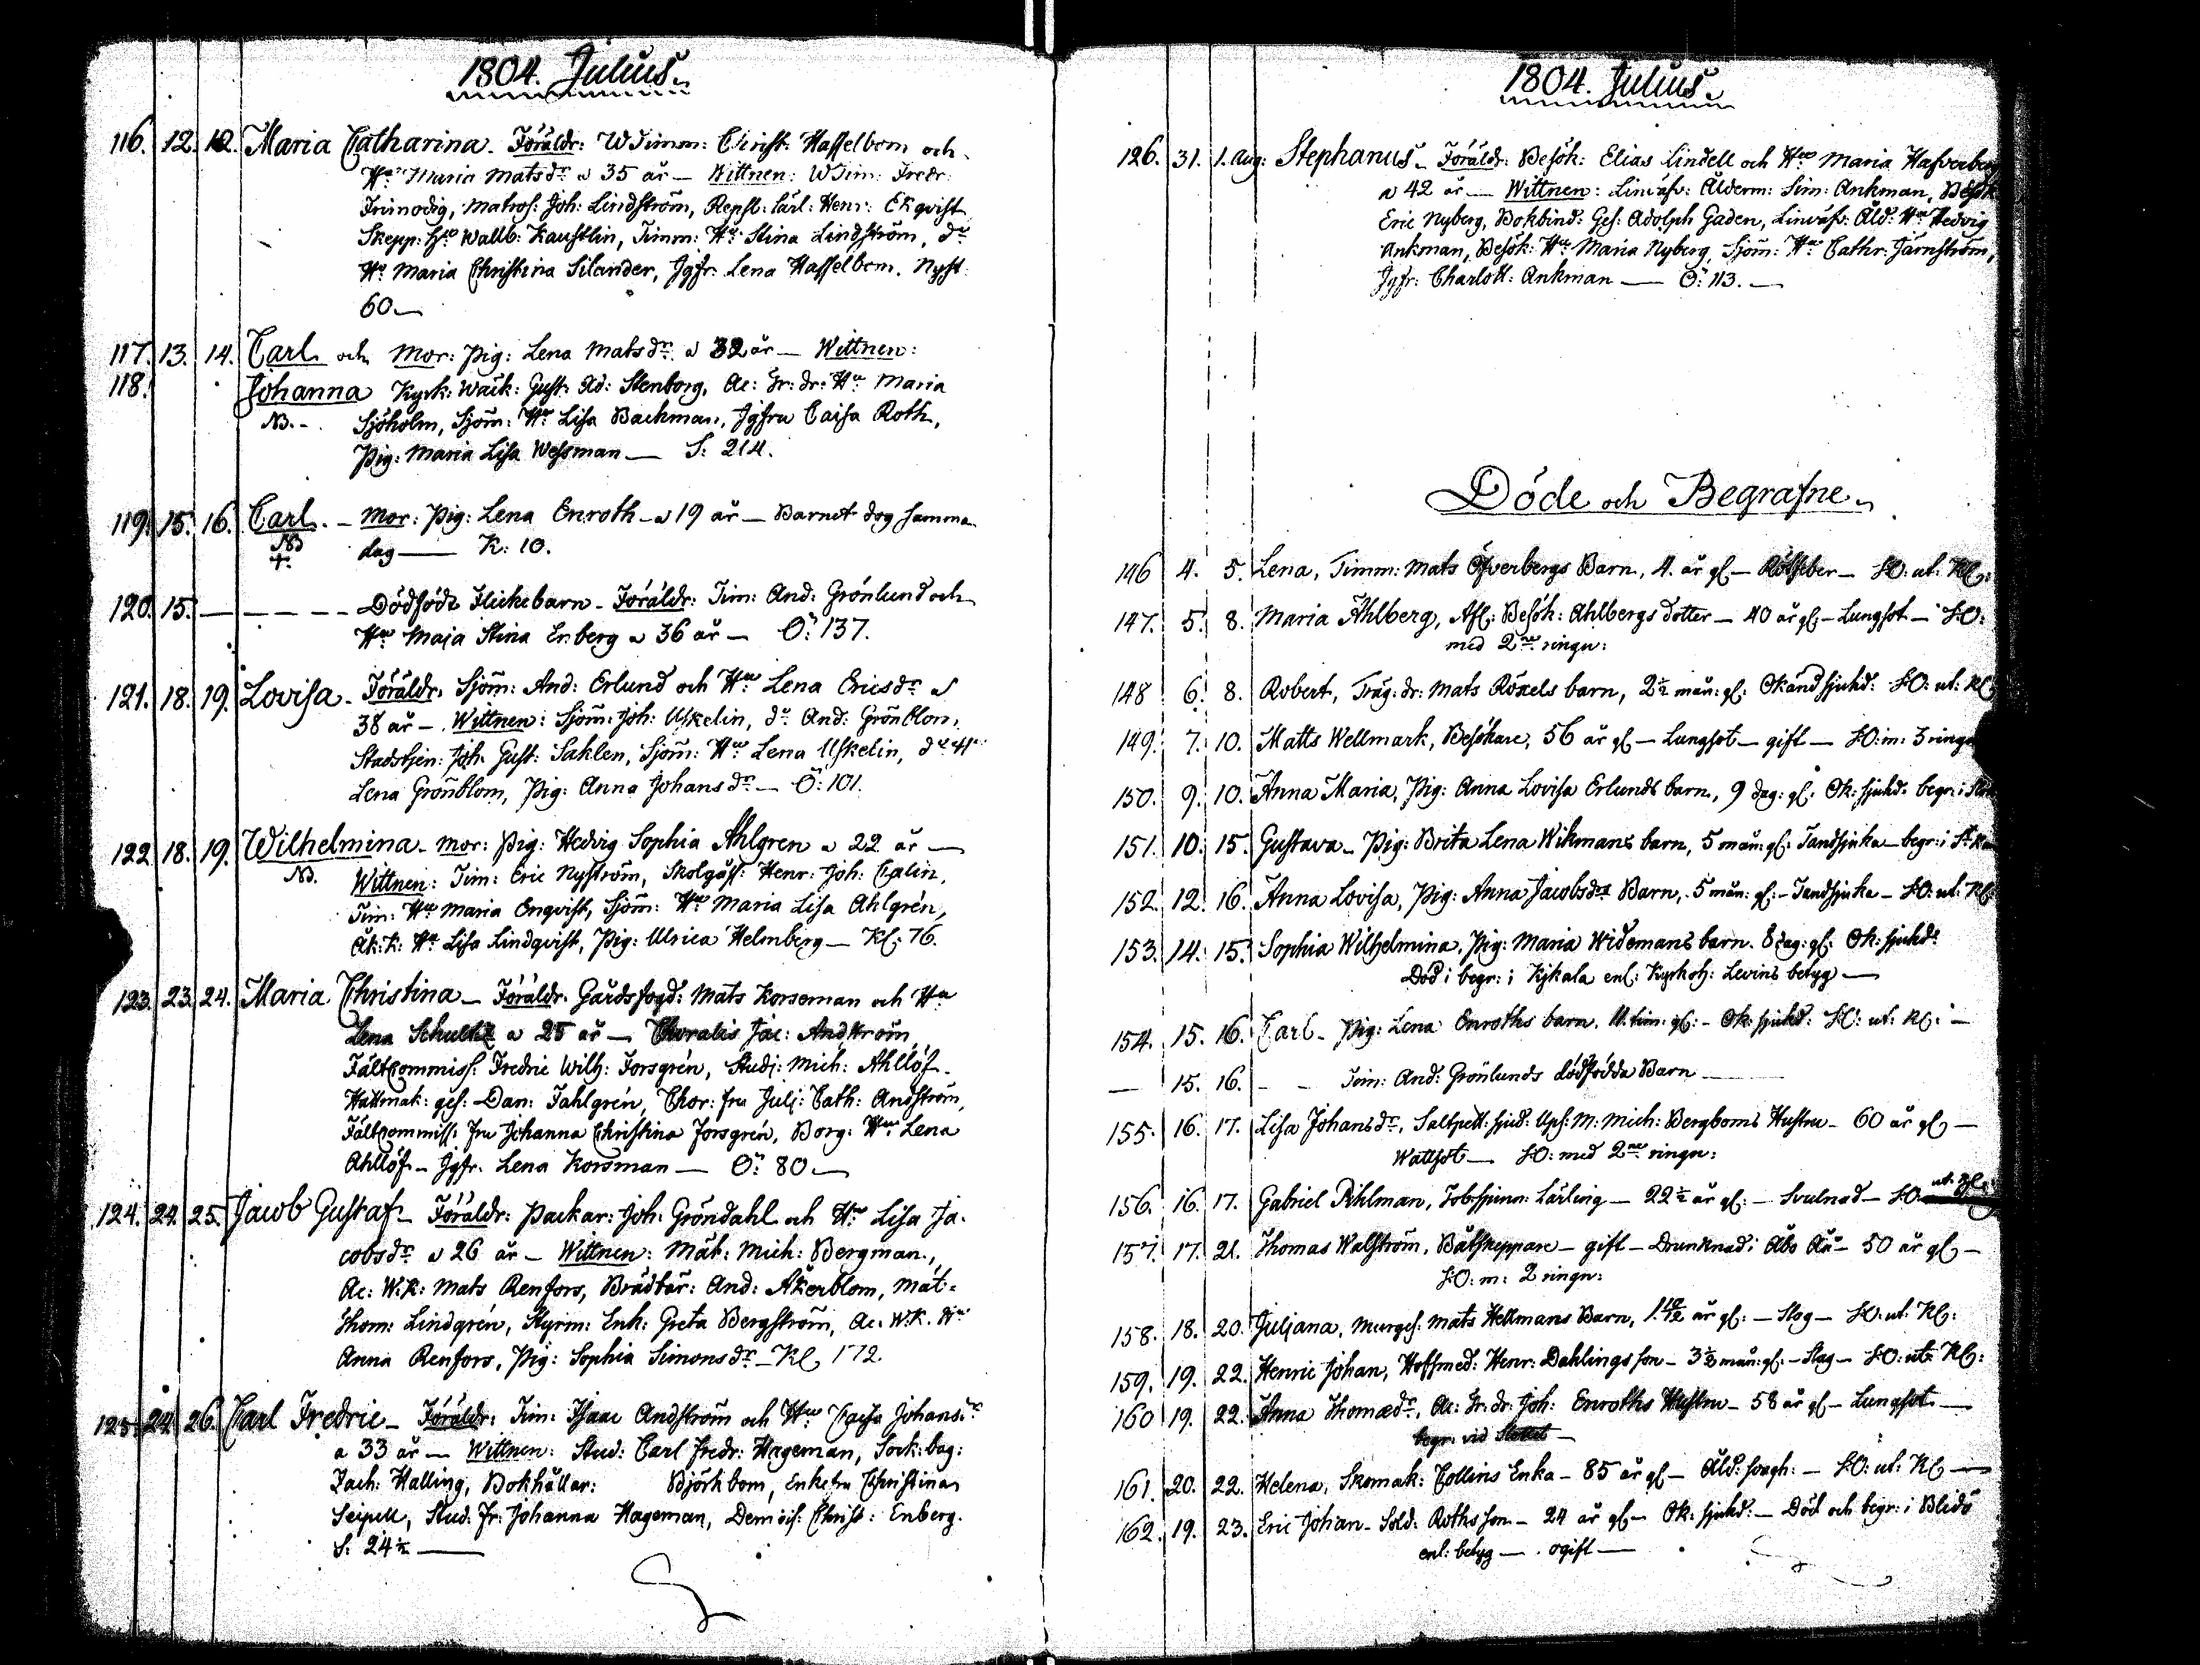 1804. Julius.
116. 12. 12. Maria Catharina. Föräldr: WTimm: Christ: Hasselbom och
Hu Maria Matsdr a 35 år — Wittnen: WTim: Fredr:
Frimodig, Matros: Joh: Lindström, Repsl: lärl: Henr: Ekqvist
Skepp: Wallb: Kaustlin, Timm: Hu Stina Lindström, do
Hu Maria Christina Silander, Jgfr: Lena Hasselbom. Nyst:
60 —
117. 13. 14. Carl och Mor: Pig: Lena Matsdr a 32 år — Wittnen:
118. Johanna Kyrk: Wack: Gust: Ad: Stenborg, Ac: Gr: dr: Hu Maria
NB. - Sjöholm, Sjöm: Hu Lisa Backman, Jgfru Caisa Roth,
Pig: Maria Lisa Wessman — S: 214.
119. 15. 16. Carl. — Mor: Pig: Lena Enroth a 19 år — Barnet dog samma
NB + dag — K: 10.
120. 15. — — — — Dödfödt Flickebarn — Föräldr: Tim: And: Grönlund och
Hu Maja Stina Enberg a 36 år — Ö: 137.
121. 18. 19. Lovisa. Föräldr: Sjöm: And: Erlund och Hu Lena Ericsdr a
38 år — Wittnen: Sjöm: Joh: Uskelin, do And: Grönblom,
Stadstjen: Joh: Gust: Sahlen, Sjöm: Hu Lena Uskelin, do Hu
Lena Grönblom, Pig: Anna Johansdr — Ö: 101.
122. 18. 19. Wilhelmina — Mor: Pig: Hedvig Sophia Ahlgren a 22 år —
NB. Wittnen: Tim: Eric Nyström, Skolgoss: Henr: Joh: Calin,
Tim: Hu Maria Enqvist, Sjöm: Hu Maria Lisa Ahlgrén,
Åk: K: Hu Lisa Lindqvist, Pig: Ulrica Helmberg — Kl: 76.
123. 23. 24. Maria Christina — Föräldr: Gårdsfogd: Mats Korseman och Hu
Lena Schultz a 25 år — Choralis Jac: Andström
Fältcommiss: Fredric Wilh: Forsgrén, Studi: Mich: Ahllöf
Hattmak: ges: Dan: Fahlgrén, Chor: fru Julj: Cath: Andström,
Fältcommiss: fru Johanna Christina Forsgrén, Borg: Hu Lena
Ahllöf — Jgfr: Lena Korsman — Ö: 80 —
124. 24. 25. Jacob Gustaf — Föräldr: Packar: Joh: Gröndahl och Hu Lisa Ja-
cobsdr a 26 år — Wittnen: Mät: Mich: Bergman,
Ac: W:K: Mats Renfors, Brädbär: And: Åkerblom, Mät:
Thom: Lindgrén, Styrm: Enk: Greta Bergström, Ac: W:K: Hu
Anna Renfors, Pig: Sophia Simonsdr — Kl: 172.
125. 24. 26. Carl Fredric — Föräldr: Tim: Isaac Andström och Hu Caisa Johansdr
a 33 år — Wittnen: Stud: Carl Fredr: Hageman, Sock: bag:
Zach: Halling, Bokhållar: Björkbom, Enkefru Christina
Seipell, Stud: Fr: Johanna Hageman, Demois: Christ: Enberg.
S: 24½ —
1804. Julius.
126. 31. 1. Aug: Stephanus — Föräldr: Besök: Elias Lindell och Hu Maria
a 42 år — Wittnen: Linväfv: Ålderm: Sim: Ankman, Besök:
Eric Nyberg, Bokbind: Ges: Adolph Gaden, Linväfv: Åld: Hu Hedvig
Ankman, Besök: Hu Maria Nyberg, Sjöm: Hu Cathr: Järnström,
Jgfr: Charlott: Ankman — Ö: 113. —
Döde och Begrafne
146 4. 5. Lena, Timm: Mats Öfverbergs Barn, 4. år gl — Rötfeber — S:O: ut: Kl:
147. 5. 8. Maria Ahlberg, Afl: Besök: Ahlbergs dotter — 40 år gl — Lungsot — S:O:
med 2ne ringn:
148 6. 8. Robert, Träg: dr: Mats Röxels barn, 2½ mån: gl: Okänd sjukd: S:O: ut: Kl:
149. 7. 10. Matts Wellmark, Besökare, 56 år gl — Lungsot — gift — S:O: m: 3 ringn
150. 9. 10. Anna Maria, Pig: Anna Lovisa Erlunds barn, 9 dag: gl: Ok: sjukd: begr: i
151. 10. 15. Gustava — Pig: Brita Lena Wikmans barn, 5 mån: gl: Tandsjuka — begr: i St:
152. 12. 16. Anna Lovisa, Pig: Anna Jacobsdrs Barn, 5 mån: gl: — Tandsjuka — S:O: ut: Kl:
153. 14. 15. Sophia Wilhelmina, Pig: Maria Widemans barn. 8 dag: gl: Ok: sjukd:
Död i begr: i Kjkala enl: Kyrkoh: Levins betyg —
154. 15. 16. Carl — Pig: Lena Enroths barn. 11. tim: gl: — Ok: sjukd: S:O: ut: Kl: —
— 15. 16. — — Tim: And: Grönlunds dödfödda Barn —
155. 16. 17. Lisa Johansdr, Saltpett: sjud: Ups: M: Mich: Bergboms Hustru — 60 år gl —
Wattsot — S:O: med 2ne ringn:
156. 16. 17. Gabriel Pihlman, Tob: spinn: Lärling — 22½ år gl: — Svulnad — S:O: ut: Kl:
157. 17. 21. Thomas Walström, Båtskeppare — gift — Drunknad i Åbo Åå — 50 år gl —
S:O: m: 2 ringn:
158. 18. 20. Juljana, Murges: Mats Hellmans Barn, 1 10/12 år gl: — Slag — S:O: ut: Kl:
159. 19. 22. Henric Johan, Hofsmed: Henr: Dahlings son — 3½ mån: gl: — Slag — S:O: ut: Kl:
160 19. 22. Anna Thomædr, Ac: Gr: dr: Joh: Enroths Hustru — 58 år gl — Lungsot —
begr: vid Slottet —
161. 20. 22. Helena, Skomak: Collins Enka — 85 år gl — Åld: svagh: — S:O: ut: Kl —
162. 19. 23. Eric Johan — Sold: Roths son — 24 år gl — Ok: sjukd: — Död och begr: i Blidö
enl: betyg — ogift —